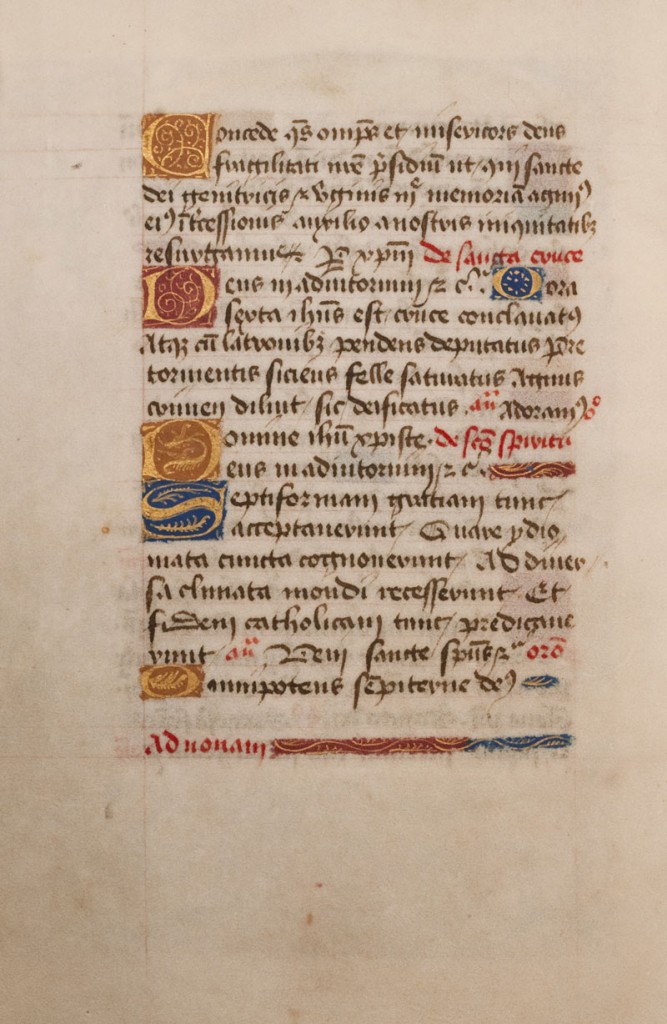 Concede q̄s omīps̄ et misericors deus
fragilitati nr̄e p̄sidiū ut qui sancte
dei genitricis ⁊ v̄ginis mr̄ memoriā agimꝰ
eiꝰ īt̄cessionis auxilio a nostris iniquitatibꝫ
resurgamus Per xp̄m de sancta cruce
Deus in adiutorium ⁊ c̄ Hora
sexta ihūs est cruce conclauatꝰ
Atqꝫ cū latronibꝫ pendens deputatus Pre
tormentis siciens felle saturatus Agnus
crimen diluit sic deificatus an̄ Adoramꝰ
Domine ihū xpiste de scō spiritu
Deus in adiutorium ⁊ c̄
Septiformam gratiam tunc
acceptauerunt Quare ydio
mata cuncta cognouerunt Ad diuer
sa climata mondi recesserunt Et
fidem catholicam tunc predicaue
runt an̄ Veni sancte spūs ⁊c̄ orō
Omnipotens sēpiterne deꝰ
Ad nonam